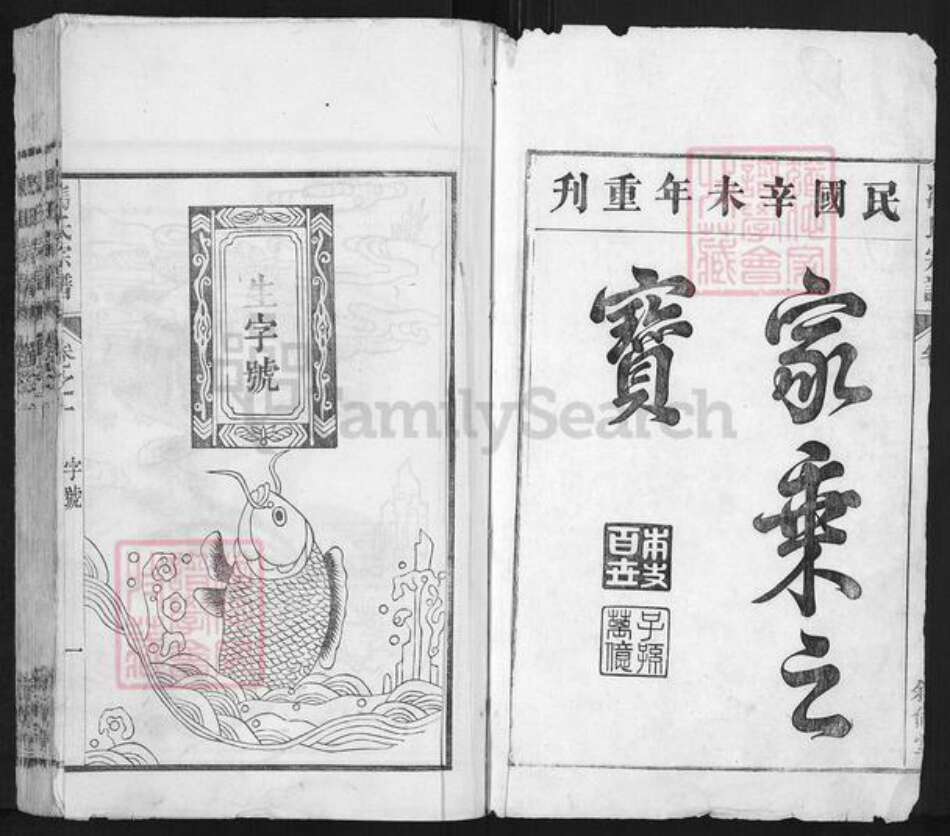 民國辛未年重刊
家乘之
寶
本支
百世
子孫
萬億
生字號
宗譜
卷之一
字號
一
FamilySearch